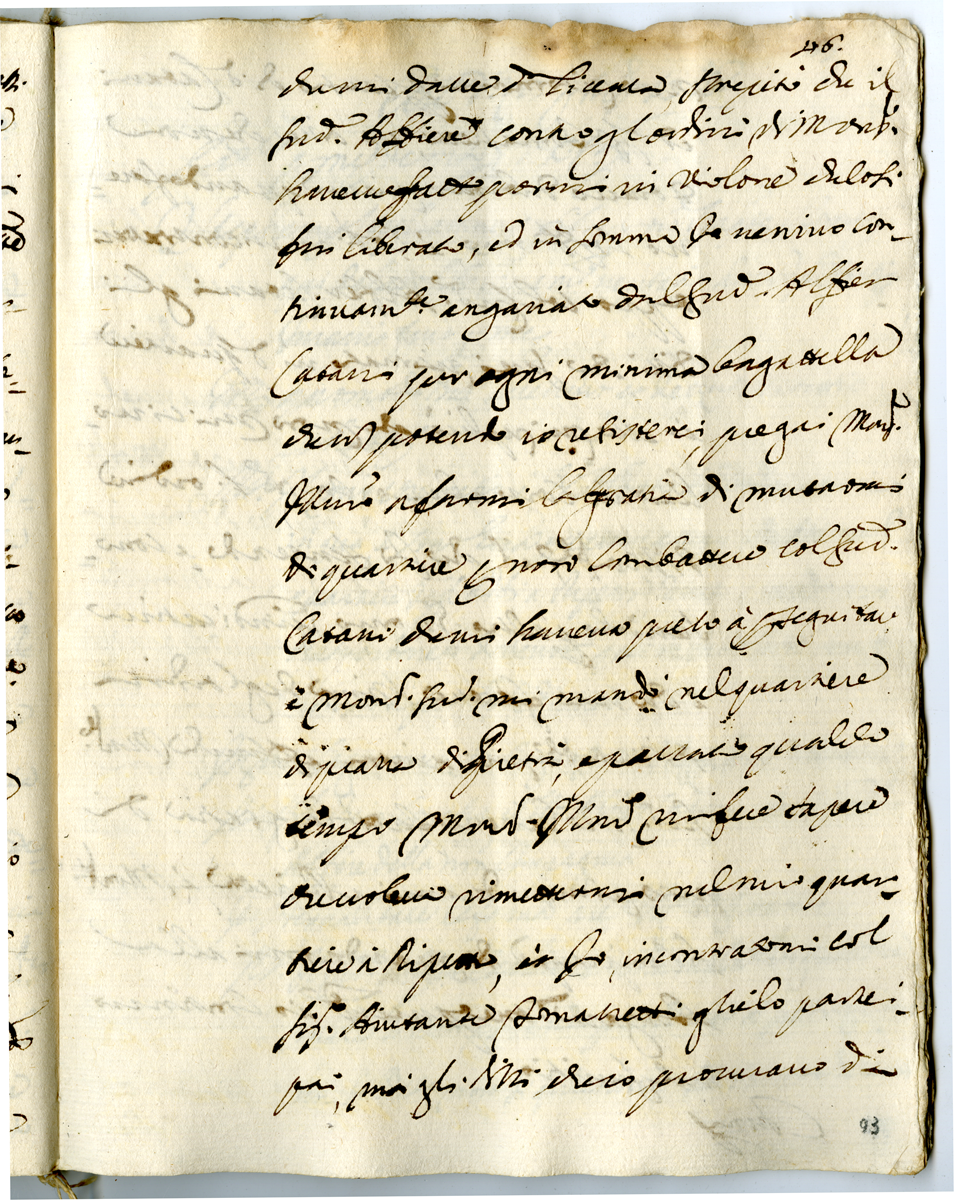 46.
che mi dasse d.ª licenza, strepitò che il
sud.º Alfiere contro gl'ordini di Mons.r
havesse fatto pormi in
fui liberato, ed in somma Io venivo con-
tinuam.te angariato dal sud.º Alfier
Catani per ogni minima bagattella
che nō potendo io resisterci, pregai Mons.r
à farmi la gratia di mutarmi
di quartiere p non combattere col sud.º
Catani che mi haveva preso à pseguitar
è Mons.r sud.º mi mandò nel quartiere
di piazza di Pietra, e passato qualche
tempo Mons.r mi fece sapere
che voleva rimettermi nel mio quar-
tiere à Ripetta, et Io, incontratomi col
Sig.r Aiutante glielo partici-
pai, mà gli dissi che io procuravo di
93